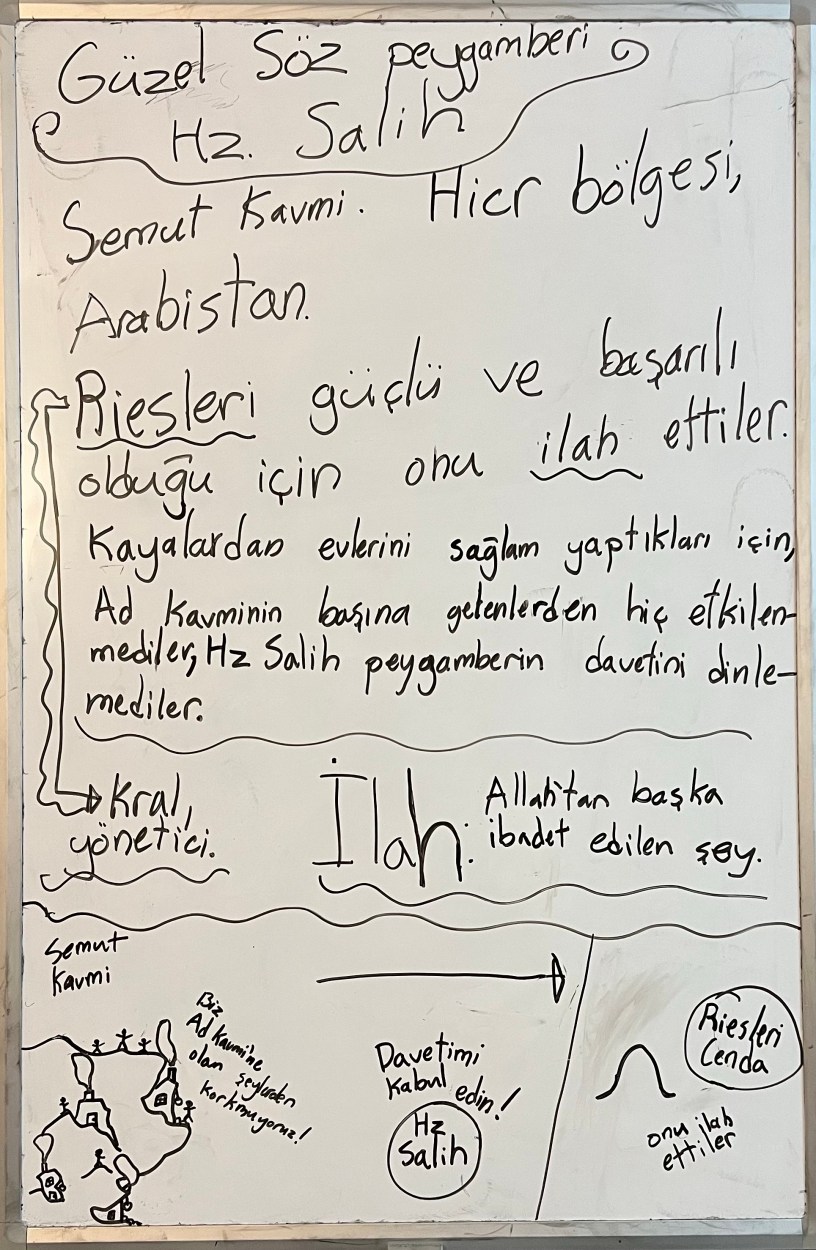 Güzel Söz peygamberi
Hz. Salih
Semut Kavmi. Hicr bölgesi,
Arabistan.
Riesleri güçlü ve başarılı
olduğu için onu ilah ettiler.
Kayalardan evlerini sağlam yaptıkları için,
Ad Kavminin başına gelenlerden hiç etkilen-
mediler, Hz Salih peygamberin davetini dinle-
mediler.
Kral,
yönetici.
İlah: Allah'tan başka
ibadet edilen şey.
Semut
Kavmi
Biz
Ad Kavmi'ne
olan şeylerden
korkmuyoruz!
Davetimi
Kabul edin!
Hz
Salih
Riesleri
Cenda
onu ilah
ettiler